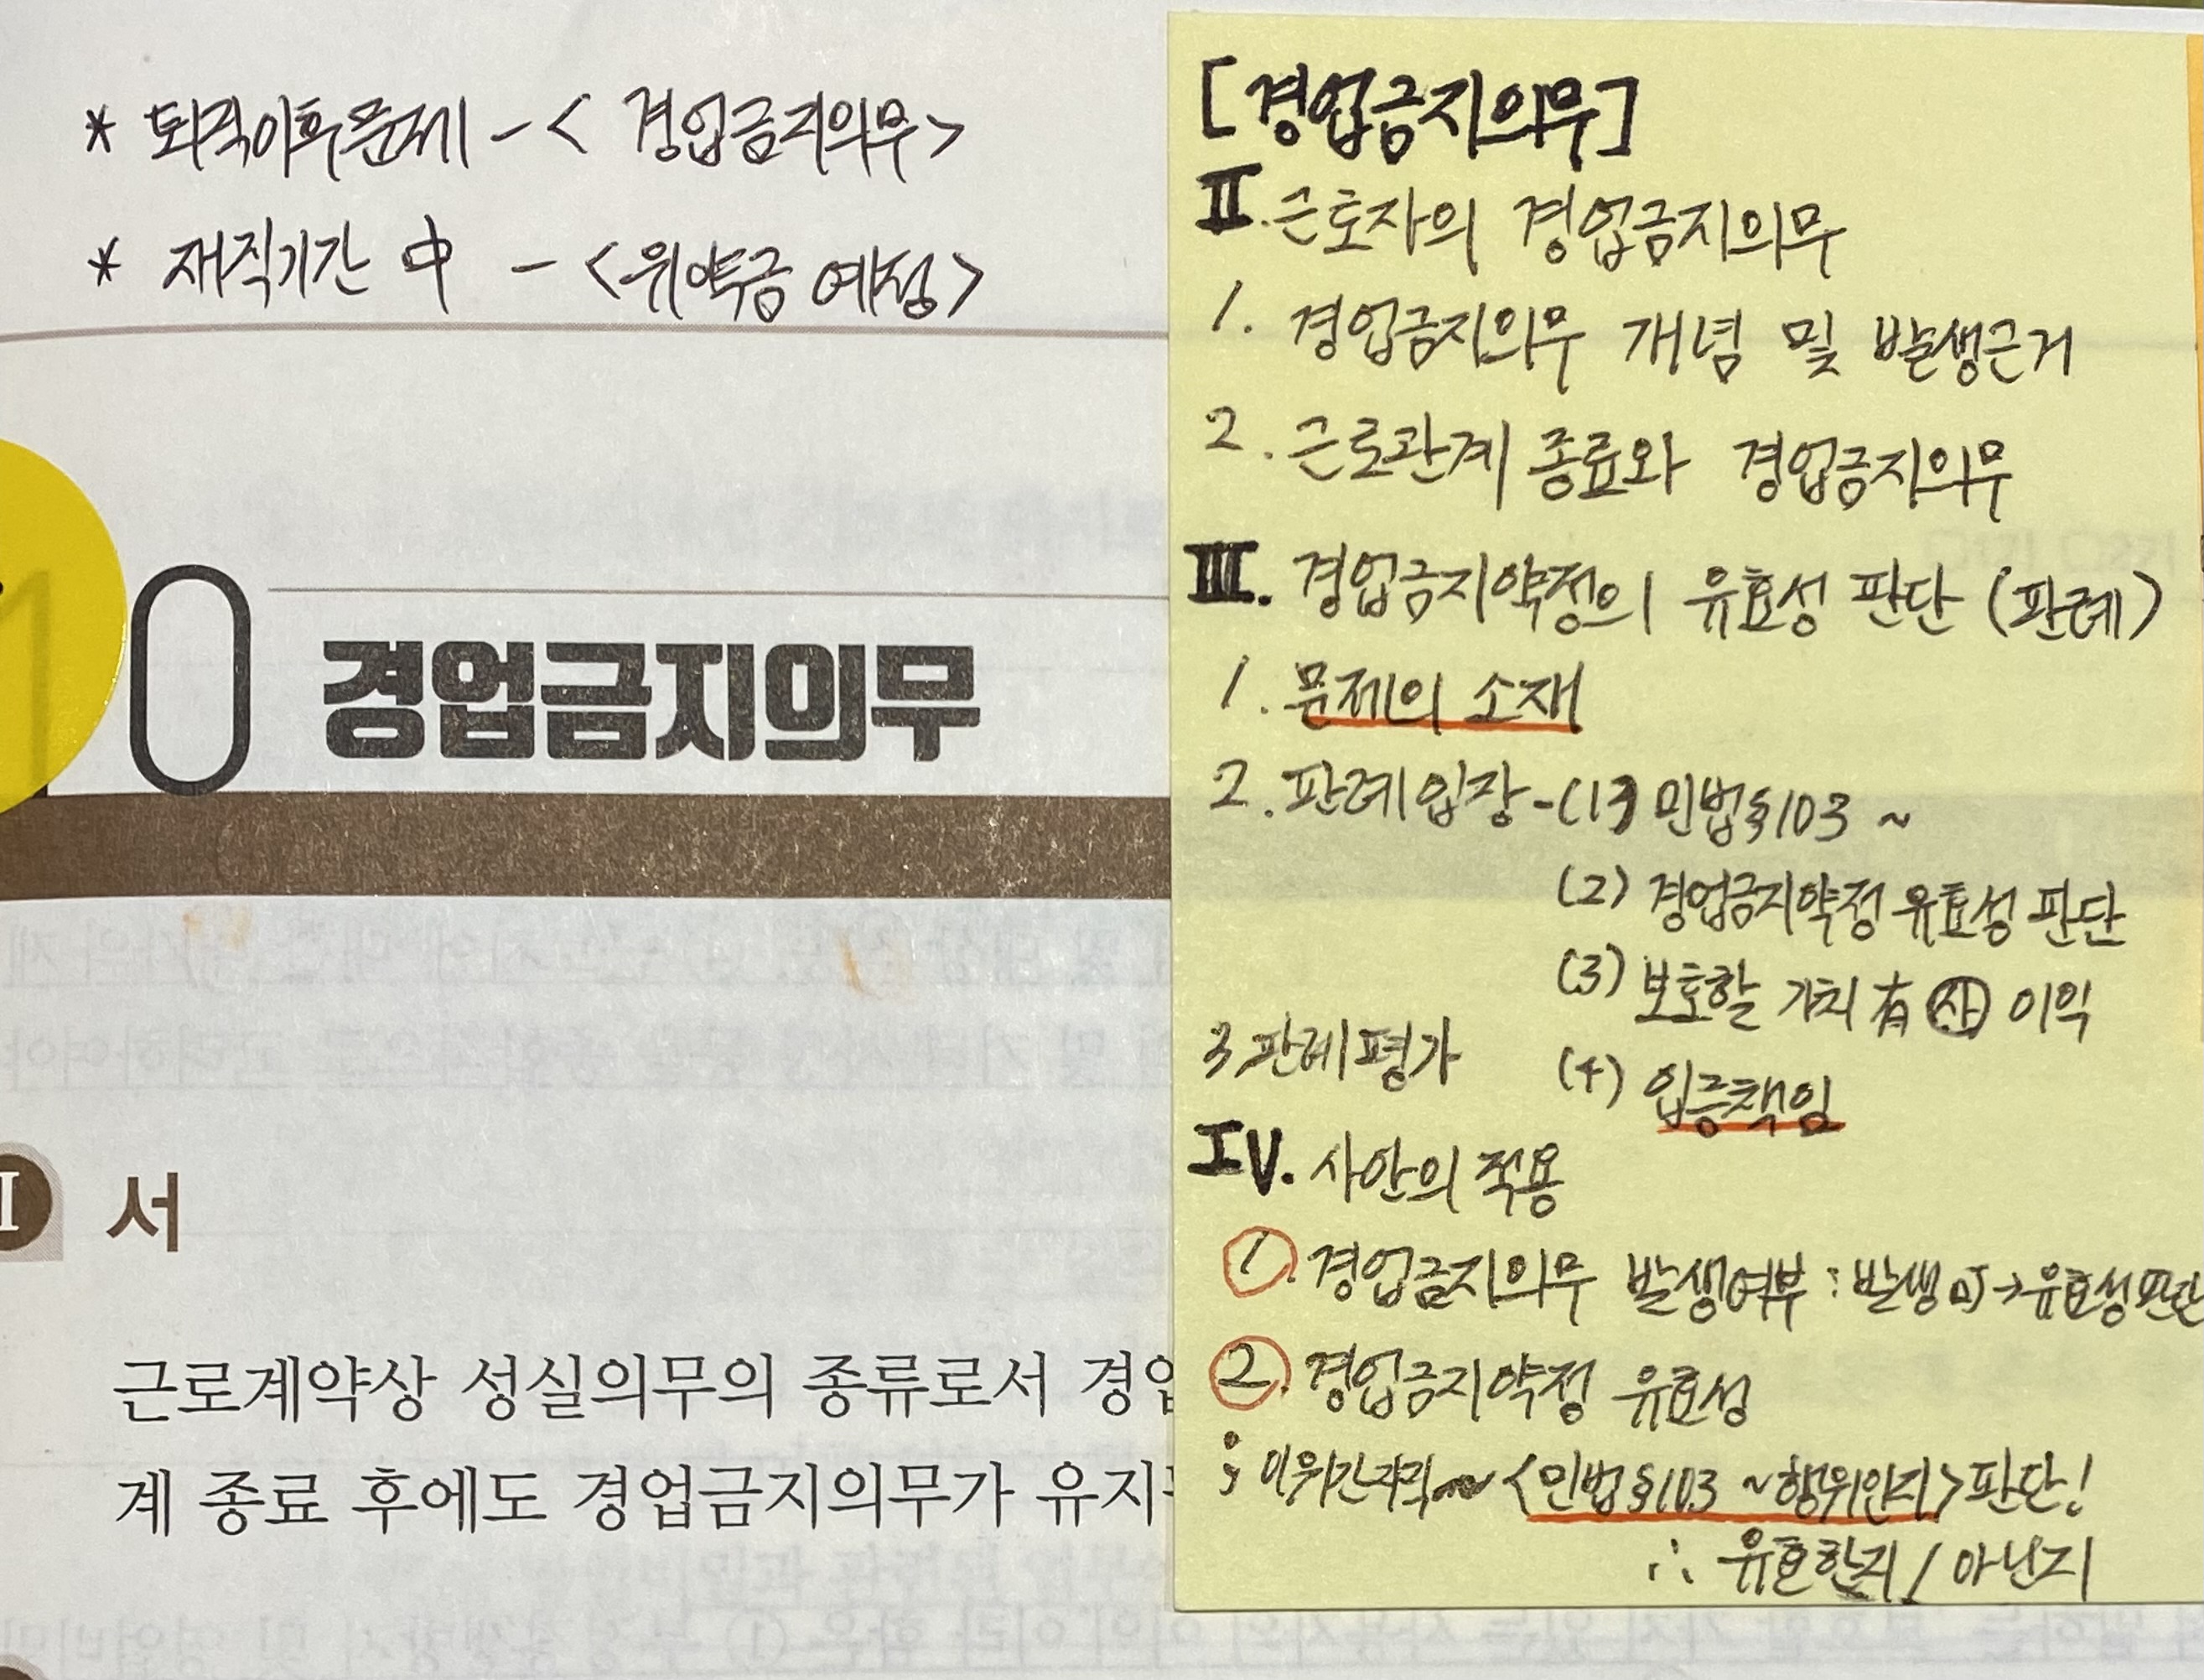 * 퇴직이후문제 - < 경업금지의무>
* 재직기간 中 - <위약금 예정>
10 경업금지의무
I 서
근로계약상 성실의무의 종류로서 경업
계 종료 후에도 경업금지의무가 유지
[경업금지의무]
II. 근로자의 경업금지의무
1. 경업금지의무 개념 및 발생근거
2. 근로관계 종료와 경업금지의무
III. 경업금지약정의 유효성 판단 (판례)
1. 문제의 소재
2. 판례입장 - (1) 민법§103 ~
(2) 경업금지약정 유효성 판단
(3) 보호할 가치 有 ㊛ 이익
3. 판례평가
(4) 입증책임
IV. 사안의 적용
①. 경업금지의무 발생여부 : 발생 → 유효성판단
②. 경업금지약정 유효성
; ~ <민법§103 ~행위인지> 판단!
∴ 유효한지 / 아닌지